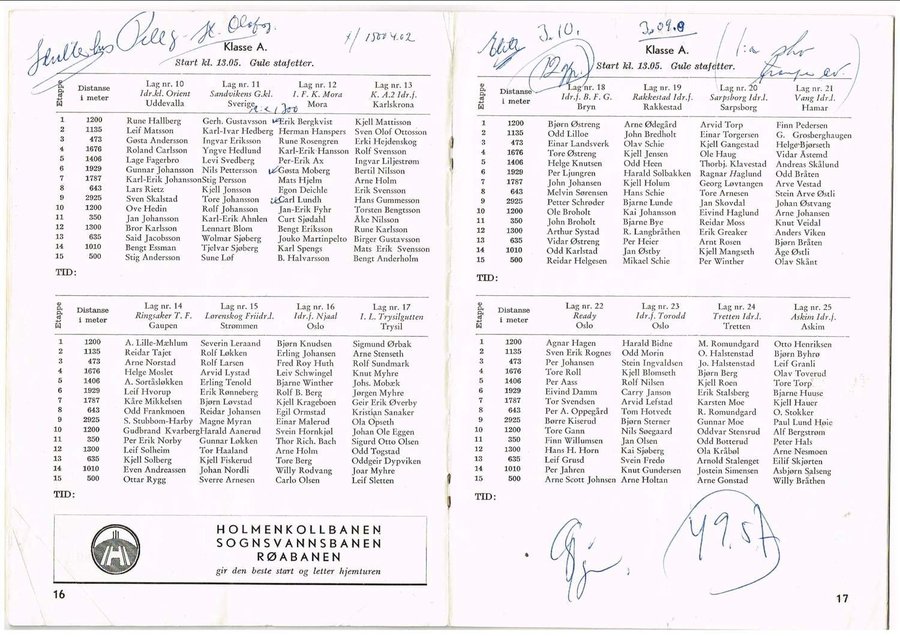 St. Olafog.
Klasse A.
Start kl. 13.05. Gule stafetter.
Etappe
Distanse i meter
Lag nr. 10 Lag nr. 11 Lag nr. 12 Lag nr. 13
Idr.kl. Orient Sandvikens G.kl. I. F. K. Mora K. A.2 Idr.f.
Uddevalla Sverige Mora Karlskrona
1 1200 Rune Hallberg Gerh. Gustavsson Erik Bergkvist Kjell Mattisson
2 1135 Leif Matsson Karl-Ivar Hedberg Herman Hanspers Sven Olof Ottosson
3 473 Gøsta Andersson Ingvar Eriksson Rune Rosengren Erki Hejdenskog
4 1676 Roland Carlsson Yngve Hedlund Karl-Erik Hansson Rolf Svensson
5 1406 Lage Fagerbro Levi Svedberg Per-Erik Ax Ingvar Liljestrøm
6 1929 Gunnar Johansson Nils Pettersson Gøsta Moberg Bertil Nilsson
7 1787 Karl-Erik Johansson Stig Persson Mats Hjelm Arne Holm
8 643 Lars Rietz Kjell Jonsson Egon Deichle Erik Svensson
9 2925 Sven Skalstad Tore Johansson Carl Lundh Hans Gummesson
10 1200 Ove Hedin Rolf Johansson Jan-Erik Fyhr Torsten Bengtsson
11 350 Jan Johansson Karl-Erik Ahnlen Curt Sjødahl Åke Nilsson
12 1300 Bror Karlsson Lennart Blom Bengt Eriksson Rune Karlsson
13 635 Said Jacobsson Wolmar Sjøberg Jouko Martinpelto Birger Gustavsson
14 1010 Bengt Essman Tjelvar Sjøberg Karl Spengs Mats Erik Svensson
15 500 Stig Andersson Sune Løf B. Halvarsson Bengt Anderholm
TID:
Etappe
Distanse i meter
Lag nr. 14 Lag nr. 15 Lag nr. 16 Lag nr. 17
Ringsaker T. F. Lørenskog Friidr.l. Idr.f. Njaal I. L. Trysilgutten
Gaupen Strømmen Oslo Trysil
1 1200 A. Lille-Mæhlum Severin Leraand Bjørn Knudsen Sigmund Ørbak
2 1135 Reidar Tajet Rolf Løkken Erling Johansen Arne Stenseth
3 473 Arne Norstad Rolf Larsen Fred Roy Huth Rolf Sundmark
4 1676 Helge Moslet Arvid Lystad Leiv Schwingel Knut Myhre
5 1406 A. Sortåsløkken Erling Tenold Bjarne Winther Johs. Mobæk
6 1929 Leif Hvorup Erik Rønneberg Rolf B. Berg Jørgen Myhre
7 1787 Kåre Mikkelsen Bjørn Løvstad Kjell Krageboen Geir Erik Øverby
8 643 Odd Frankmoen Reidar Johansen Egil Ormstad Kristian Sanaker
9 2925 S. Stubbom-Harby Magne Myran Einar Malerud Ola Opseth
10 1200 Gudbrand Kvarberg Harald Aanerud Svein Hornkjøl Johan Ole Eggen
11 350 Per Erik Norby Gunnar Løkken Thor Rich. Bach Sigurd Otto Olsen
12 1300 Leif Solheim Tor Haaland Arne Holm Odd Togstad
13 635 Kjell Solberg Kjell Fiskerud Tore Berg Oddgeir Dypviken
14 1010 Even Andreassen Johan Nordli Willy Rodvang Joar Myhre
15 500 Ottar Rygg Sverre Arnesen Carlo Olsen Leif Sletten
TID:
HOLMENKOLLBANEN
SOGNSVANNSBANEN
RØABANEN
gir den beste start og letter hjemturen
16
3.10. 3.09.8
Klasse A.
Start kl. 13.05. Gule stafetter.
Etappe
Distanse i meter
Lag nr. 18 Lag nr. 19 Lag nr. 20 Lag nr. 21
Idr.f. B. F. G. Rakkestad Idr.f. Sarpsborg Idr.l. Vang Idr.l.
Bryn Rakkestad Sarpsborg Hamar
1 1200 Bjørn Østreng Arne Ødegård Arvid Torp Finn Pedersen
2 1135 Odd Lilloe John Bredholt Einar Torgersen G. Grosberghaugen
3 473 Einar Landsverk Olav Schie Kjell Gangestad Helge Bjørseth
4 1676 Tore Østreng Kjell Jensen Ole Haug Vidar Åstemd
5 1406 Helge Knutsen Odd Heen Thorbj. Klavestad Andreas Skålund
6 1929 Per Ljungren Harald Solbakken Ragnar Haglund Odd Bråten
7 1787 John Johansen Kjell Holum Georg Løvtangen Arve Vestad
8 643 Melvin Sørensen Hans Schie Tore Arnesen Stein Arve Østli
9 2925 Petter Schrøder Bjarne Lunde Jan Skovdal Johan Østvang
10 1200 Ole Broholt Kai Johansen Eivind Haglund Arne Johansen
11 350 John Broholt Bjarne Bye Reidar Moss Knut Veidal
12 1300 Arthur Systad R. Langbråthen Erik Greaker Anders Viken
13 635 Vidar Østreng Per Heier Arnt Rosen Bjørn Bråten
14 1010 Odd Karlstad Jan Østby Kjell Mangseth Åge Østli
15 500 Reidar Helgesen Mikael Schie Per Winther Olav Skånt
TID:
Etappe
Distanse i meter
Lag nr. 22 Lag nr. 23 Lag nr. 24 Lag nr. 25
Ready Idr.f. Torodd Tretten Idr.l. Askim Idr.f.
Oslo Oslo Tretten Askim
1 1200 Agnar Hagen Harald Bidne M. Romundgard Otto Henriksen
2 1135 Sven Erik Rognes Odd Morin O. Halstenstad Bjørn Byhre
3 473 Per Johansen Stein Ingvaldsen Jo. Halstenstad Leif Granli
4 1676 Tore Roll Kjell Blomseth Bjørn Berg Olav Toverud
5 1406 Per Aass Rolf Nilsen Kjell Roen Tore Torp
6 1929 Eivind Damm Carry Janson Erik Stalsberg Bjarne Huuse
7 1787 Tor Svendsen Arvid Lefstad Karsten Moe Kjell Hauer
8 643 Per A. Oppegård Tom Hotvedt R. Romundgard O. Stokker
9 2925 Børre Kiserud Bjørn Sterner Gunnar Moe Paul Lund Høie
10 1200 Tore Gann Nils Søegaard Oddvar Stensrud Alf Bergstrøm
11 350 Finn Willumsen Jan Olsen Odd Botterud Peter Hals
12 1300 Hans H. Horn Kai Sjøberg Ola Kråbøl Arne Nesmoen
13 635 Leif Grusd Svein Fredo Arnold Stalenget Eilif Skjørten
14 1010 Per Jahren Knut Gundersen Jostein Simensen Asbjørn Salseng
15 500 Arne Scott Johnsen Arne Holtan Arne Gonstad Willy Bråthen
TID:
17